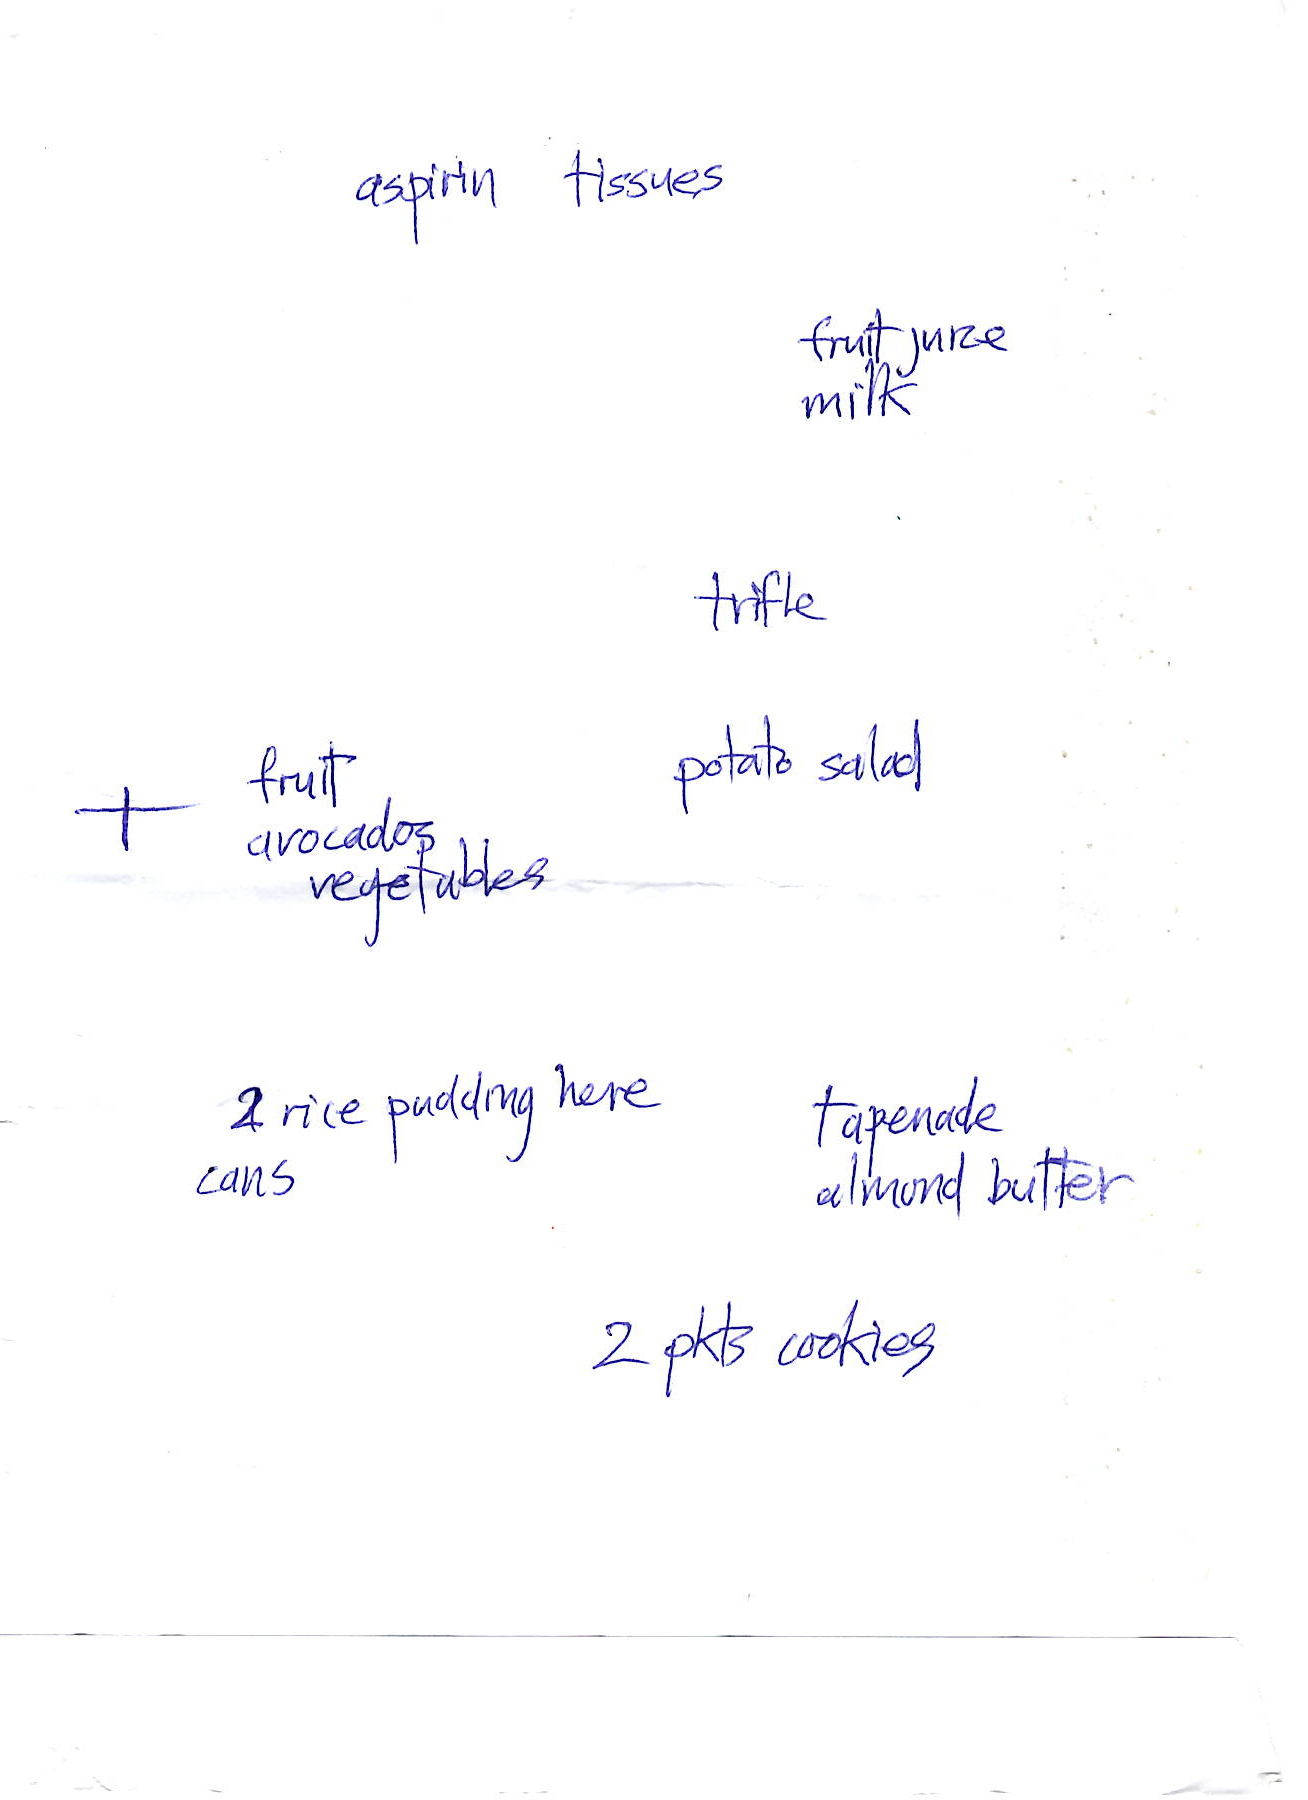 aspirin tissues
fruit juice
milk
trifle
potato salad
fruit
+
avocados
vegetables
2 rice pudding here
cans
tapenade
almond butter
2 pkts cookies